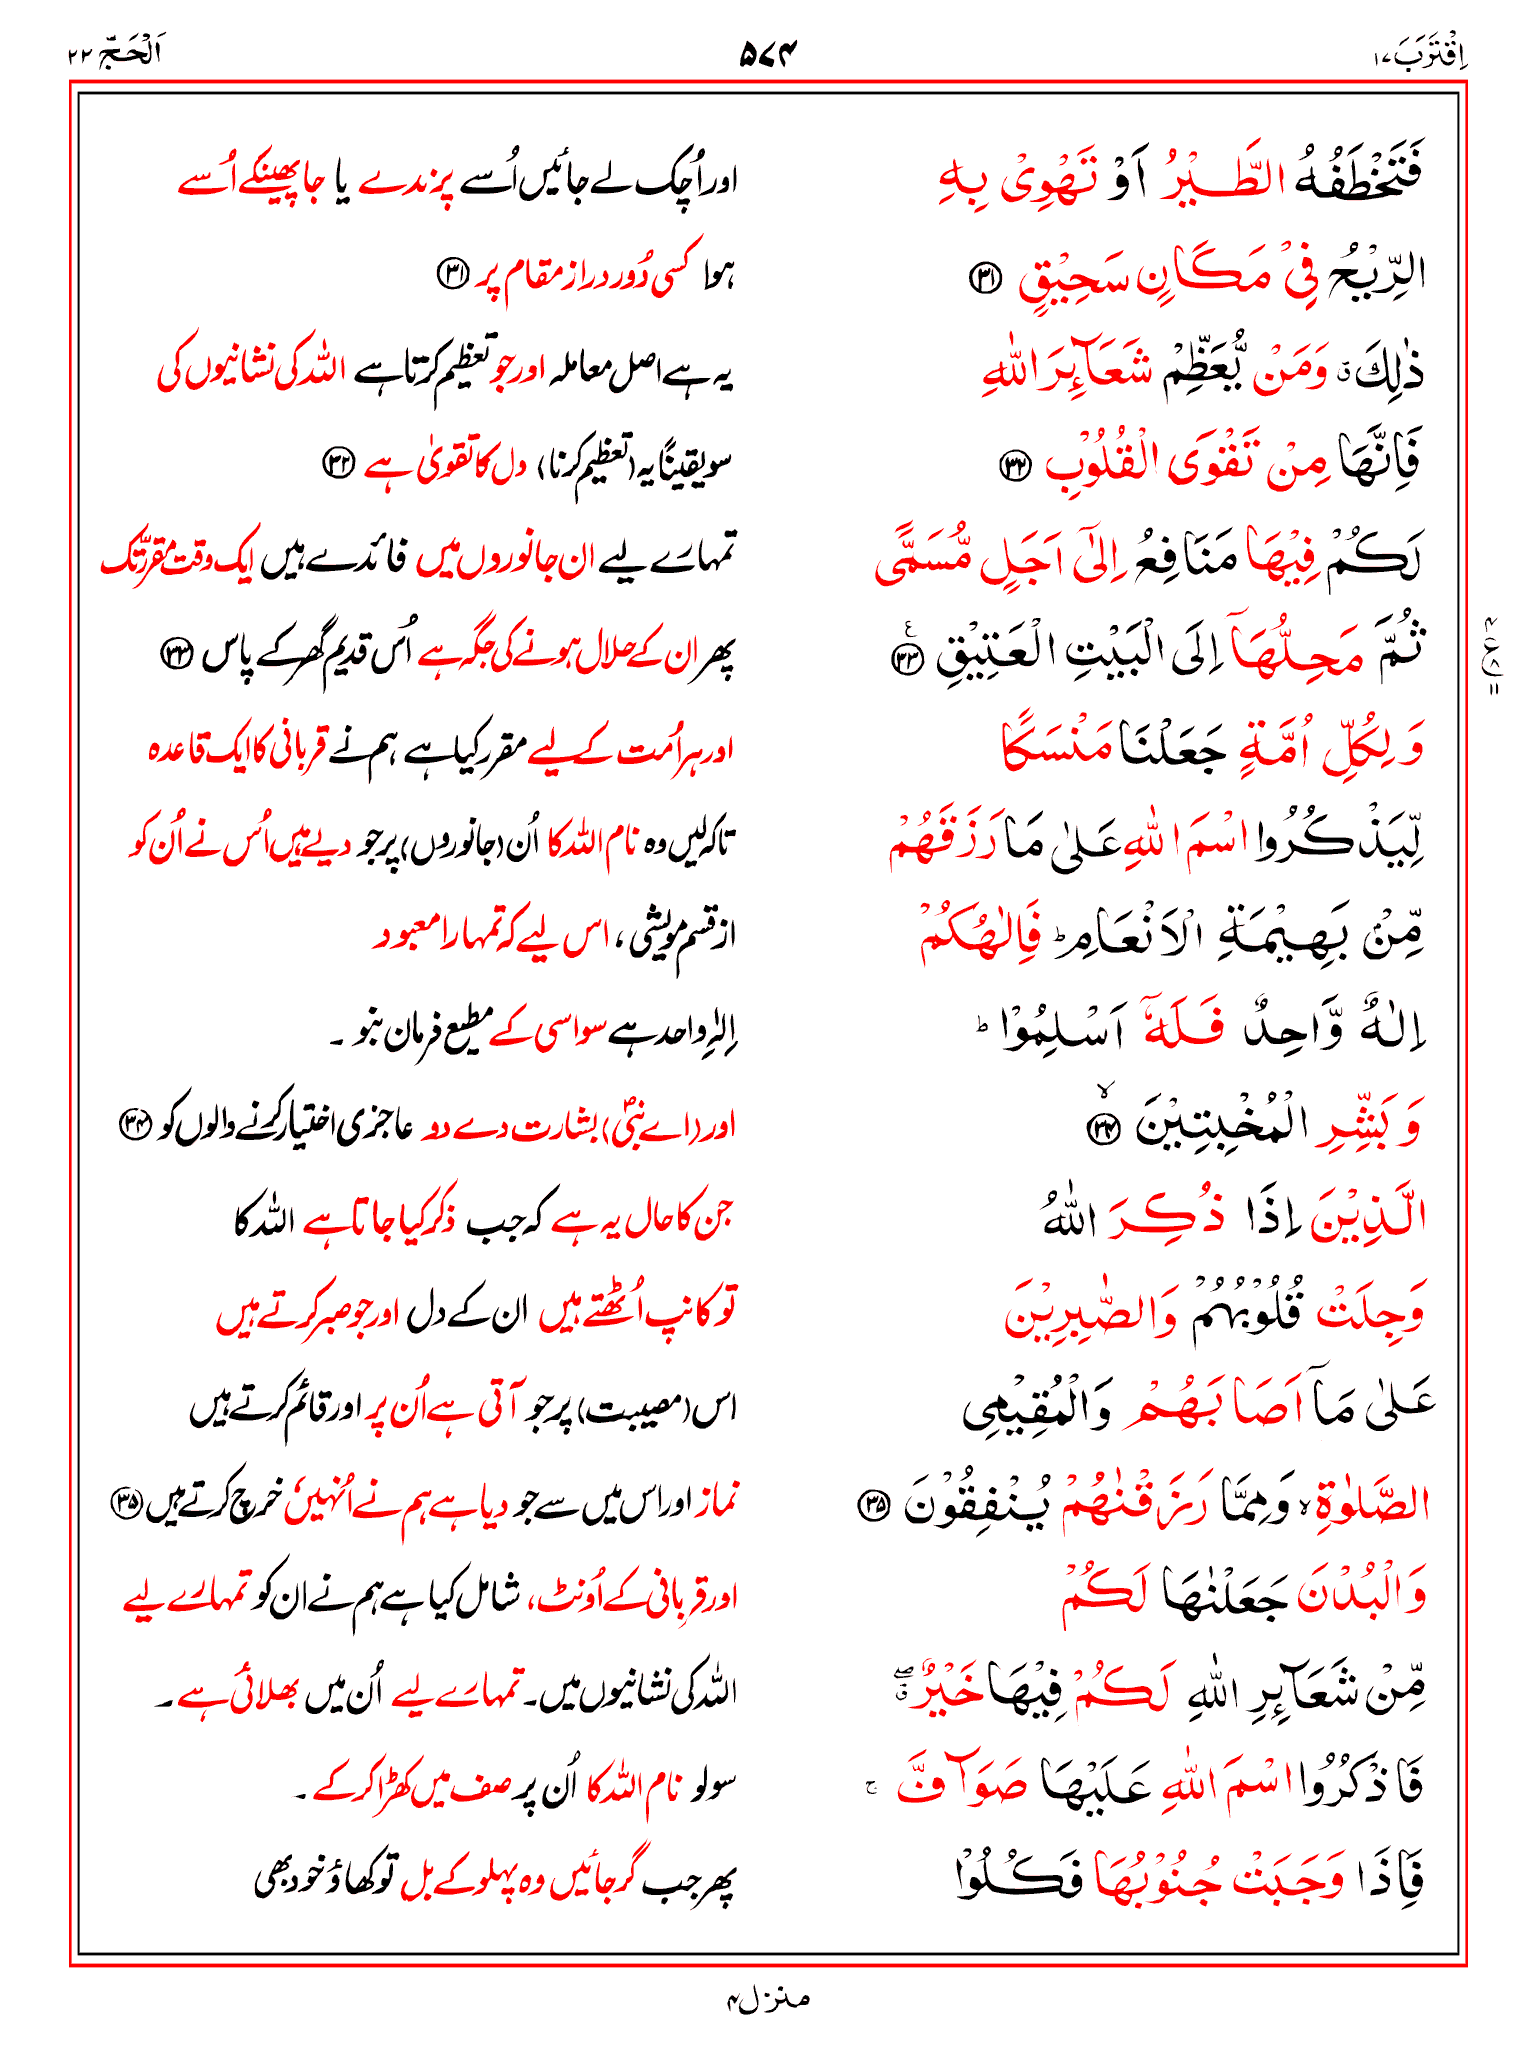 اِقْتَرَبَ ۱۷
۵۷۴
اَلْحَجّ ۲۲
فَتَخْطَفُهُ الطَّيْرُ اَوْ تَهْوِىْ بِهِ
اور اُچک لے جائیں اُسے پرندے یا جا پھینکے اُسے
الرِّيْحُ فِىْ مَكَانٍ سَحِيْقٍ ۳۱
ہوا کسی دُور دراز مقام پر ۳۱
ذٰلِكَ ۛ وَمَنْ يُّعَظِّمْ شَعَآئِرَ اللّٰهِ
یہ ہے اصل معاملہ اور جو تعظیم کرتا ہے اللہ کی نشانیوں کی
فَاِنَّهَا مِنْ تَقْوَى الْقُلُوْبِ ۳۲
سو یقینًا یہ (تعظیم کرنا) دل کا تقویٰ ہے ۳۲
لَكُمْ فِيْهَا مَنَافِعُ اِلٰٓى اَجَلٍ مُّسَمًّى
تمہارے لیے ان جانوروں میں فائدے ہیں ایک وقت مقررّ تک
ثُمَّ مَحِلُّهَآ اِلَى الْبَيْتِ الْعَتِيْقِ ۳۳ ع
پھر ان کے حلال ہونے کی جگہ ہے اُس قدیم گھر کے پاس ۳۳
۴ ع ۸ ۱۱
وَلِكُلِّ اُمَّةٍ جَعَلْنَا مَنْسَكًا
اور ہر اُمت کے لیے مقرر کیا ہے ہم نے قربانی کا ایک قاعدہ
لِّيَذْكُرُوا اسْمَ اللّٰهِ عَلٰى مَا رَزَقَهُمْ
تاکہ لیں وہ نام اللہ کا اُن (جانوروں) پر جو دیے ہیں اُس نے اُن کو
مِّنْۢ بَهِيْمَةِ الْاَنْعَامِ ؕ فَاِلٰهُكُمْ
از قسم مویشی، اس لیے کہ تمہارا معبود
اِلٰهٌ وَّاحِدٌ فَلَهٗۤ اَسْلِمُوْا ؕ
اِلٰہِ واحد ہے سو اسی کے مطیع فرمان بنو۔
وَبَشِّرِ الْمُخْبِتِيْنَ ۳۴ ۙ
اور (اے نبیؐ) بشارت دے دو عاجزی اختیار کرنے والوں کو ۳۴
الَّذِيْنَ اِذَا ذُكِرَ اللّٰهُ
جن کا حال یہ ہے کہ جب ذکر کیا جاتا ہے اللہ کا
وَجِلَتْ قُلُوْبُهُمْ وَالصّٰبِرِيْنَ
تو کانپ اُٹھتے ہیں ان کے دل اور جو صبر کرتے ہیں
عَلٰى مَآ اَصَابَهُمْ وَالْمُقِيْمِى
اس (مصیبت) پر جو آتی ہے اُن پر اور قائم کرتے ہیں
الصَّلٰوةِ ۙ وَمِمَّا رَزَقْنٰهُمْ يُنْفِقُوْنَ ۳۵
نماز اور اس میں سے جو دیا ہے ہم نے اُنہیں خرچ کرتے ہیں ۳۵
وَالْبُدْنَ جَعَلْنٰهَا لَكُمْ
اور قربانی کے اُونٹ، شامل کیا ہے ہم نے ان کو تمہارے لیے
مِّنْ شَعَآئِرِ اللّٰهِ لَكُمْ فِيْهَا خَيْرٌ ۖ ق
اللہ کی نشانیوں میں۔ تمہارے لیے اُن میں بھلائی ہے۔
فَاذْكُرُوا اسْمَ اللّٰهِ عَلَيْهَا صَوَآفَّ ۚ
سو لو نام اللہ کا اُن پر صف میں کھڑا کرکے۔
فَاِذَا وَجَبَتْ جُنُوْبُهَا فَكُلُوْا
پھر جب گر جائیں وہ پہلو کے بل تو کھاؤ خود بھی
منزل ۴